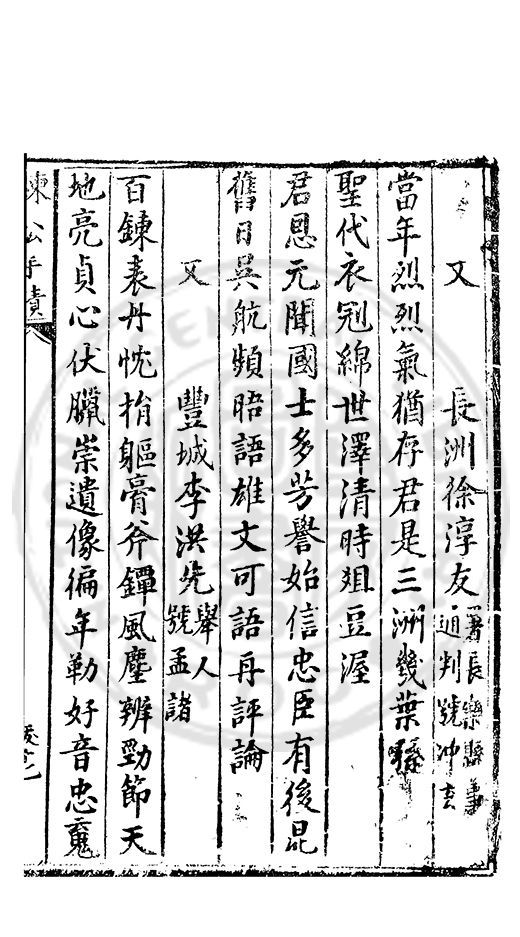 又 長洲徐淳友 署長樂縣事通判號冲玄
當年烈烈氣猶存君是三洲幾葉孫
聖代衣冠綿世澤清時俎豆渥
君恩元聞國士多芳譽始信忠臣有後昆
舊日吳航頻晤語雄文可語再評論
又 豐城李洪先 舉人號孟諸
百鍊表丹忱捐軀膏斧鐔風塵辨勁節天
地亮貞心伏臘崇遺像徧年勒好音忠䰟
公手